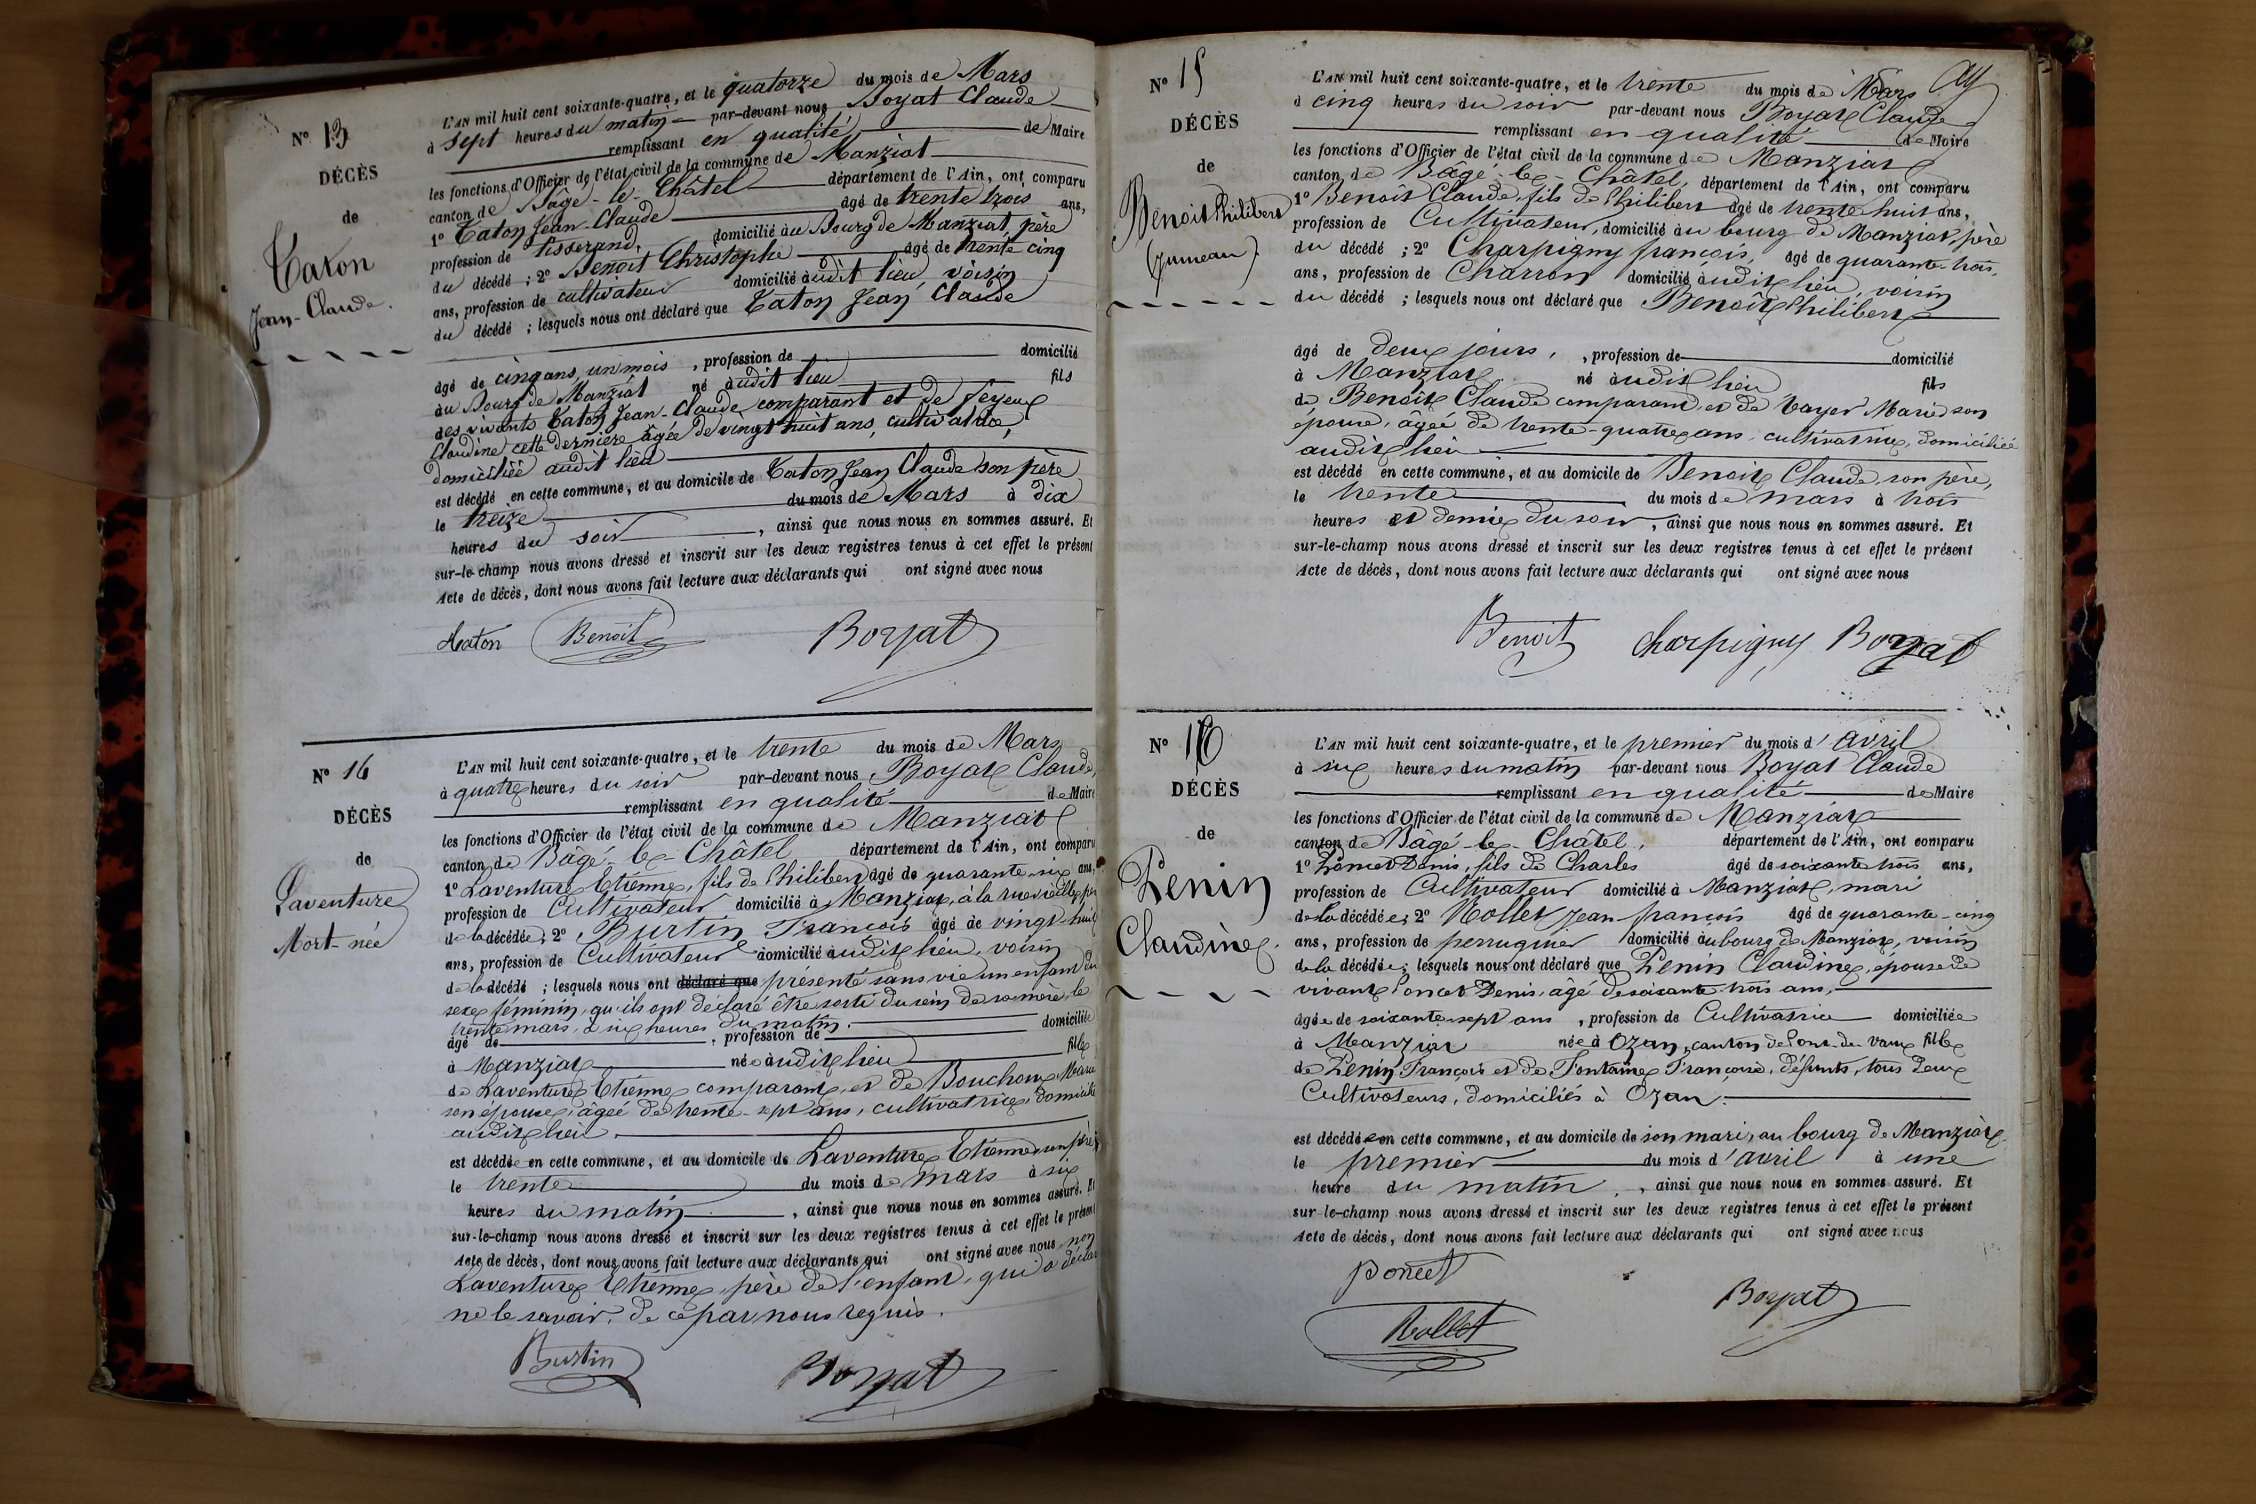 N° 13
DÉCÈS
de
Caton
Jean-Claude.
L'AN mil huit cent soixante-quatre, et le quatorze du mois de Mars
à sept heures du matin par-devant nous Boyat Claude
remplissant en qualité de Maire
les fonctions d'Officier de l'état civil de la commune de Manziat
canton de Bâgé-le-Châtel département de l'Ain, ont comparu
1° Caton Jean-Claude âgé de trente trois ans,
profession de tisserand, domicilié au Bourg de Manziat, père
du décédé ; 2° Benoit Christophe âgé de trente cinq
ans, profession de cultivateur domicilié audit lieu, voisin
du décédé ; lesquels nous ont déclaré que Caton Jean Claude
âgé de cinq ans, un mois , profession de domicilié
au Bourg de Manziat né audit lieu fils
des vivants Caton Jean-Claude, comparant et de Feyeux
Claudine cette dernière âgée de vingt huit ans, cultivatrice,
domiciliée audit lieu
est décédé en cette commune, et au domicile de Caton Jean Claude son père
le treize du mois de Mars à dix
heures du soir , ainsi que nous nous en sommes assuré. Et
sur-le-champ nous avons dressé et inscrit sur les deux registres tenus à cet effet le présent
Acte de décès, dont nous avons fait lecture aux déclarants qui ont signé avec nous
Caton Benoit Boyat
N° 16
DÉCÈS
de
Laventure
Mort-née
L'AN mil huit cent soixante-quatre, et le trente du mois de Mars
à quatre heures du soir par-devant nous Boyat Claude,
remplissant en qualité de Maire
les fonctions d'Officier de l'état civil de la commune de Manziat
canton de Bâgé-le-Châtel département de l'Ain, ont comparu
1° Laventure Etienne, fils de Philibert âgé de quarante-six ans,
profession de Cultivateur domicilié à Manziat, à la rue vieille, père
de la décédée ; 2° Burtin François âgé de vingt-huit
ans, profession de Cultivateur domicilié audit lieu, voisin
de la décédé ; lesquels nous ont déclaré que présenté sans vie un enfant du
sexe féminin, qu'ils ont déclaré être sorti du sein de sa mère, le
trente mars, à six heures du matin.
âgé de , profession de domiciliée
à Manziat née audit lieu fille
de Laventure Etienne comparant, et de Bouchoux Marie
son épouse, âgée de trente-sept ans, cultivatrice, domiciliée
audit lieu.
est décédée en cette commune, et au domicile de Laventure Etienne son père
le trente du mois de mars à six
heures du matin , ainsi que nous nous en sommes assuré. Et
sur-le-champ nous avons dressé et inscrit sur les deux registres tenus à cet effet le présent
Acte de décès, dont nous avons fait lecture aux déclarants qui ont signé avec nous, non
Laventure Etienne, père de l'enfant, qui a déclaré
ne le savoir, de ce par nous requis.
Burtin Boyat
N° 15
DÉCÈS
de
Benoit Philibert
(Jumeau).
L'AN mil huit cent soixante-quatre, et le trente du mois de Mars
à cinq heures du soir par-devant nous Boyat Claude
remplissant en qualité de Maire
les fonctions d'Officier de l'état civil de la commune de Manziat
canton de Bâgé-le-Châtel, département de l'Ain, ont comparu
1° Benoit Claude, fils de Philibert âgé de trente huit ans,
profession de Cultivateur, domicilié au bourg de Manziat, père
du décédé ; 2° Charpigny françois, âgé de quarante-trois
ans, profession de Charron domicilié audit lieu, voisin
du décédé ; lesquels nous ont déclaré que Benoit Philibert
âgé de deux jours, , profession de domicilié
à Manziat né audit lieu fils
de Benoit Claude comparant, et de Cayer Marie son
épouse, âgée de trente-quatre ans, cultivatrice, domiciliée
audit lieu
est décédé en cette commune, et au domicile de Benoit Claude son père,
le trente du mois de mars à trois
heures et demie du soir, ainsi que nous nous en sommes assuré. Et
sur-le-champ nous avons dressé et inscrit sur les deux registres tenus à cet effet le présent
Acte de décès, dont nous avons fait lecture aux déclarants qui ont signé avec nous
Benoit Charpigny Boyat
N° 16
DÉCÈS
de
Penin
Claudine.
L'AN mil huit cent soixante-quatre, et le premier du mois d'avril
à six heures du matin par-devant nous Boyat Claude
remplissant en qualité de Maire
les fonctions d'Officier de l'état civil de la commune de Manziat
canton de Bâgé-le-Châtel, département de l'Ain, ont comparu
1° Poncet Denis, fils de Charles âgé de soixante trois ans,
profession de Cultivateur domicilié à Manziat, mari
de la décédée ; 2° Rollet Jean-françois âgé de quarante-cinq
ans, profession de perruquier domicilié au bourg de Manziat, voisin
de la décédée ; lesquels nous ont déclaré que Penin Claudine, épouse de
vivant Poncet Denis, âgé de soixante trois ans,
âgée de soixante sept ans , profession de Cultivatrice domiciliée
à Manziat née à Ozan, canton de Pont-de-vaux fille
de Penin François et de Fontaine Françoise, défunts, tous deux
Cultivateurs, domiciliés à Ozan.
est décédée en cette commune, et au domicile de son mari, au bourg de Manziat,
le premier du mois d'avril à une
heure du matin, , ainsi que nous nous en sommes assuré. Et
sur-le-champ nous avons dressé et inscrit sur les deux registres tenus à cet effet le présent
Acte de décès, dont nous avons fait lecture aux déclarants qui ont signé avec nous
Poncet
Rollet Boyat